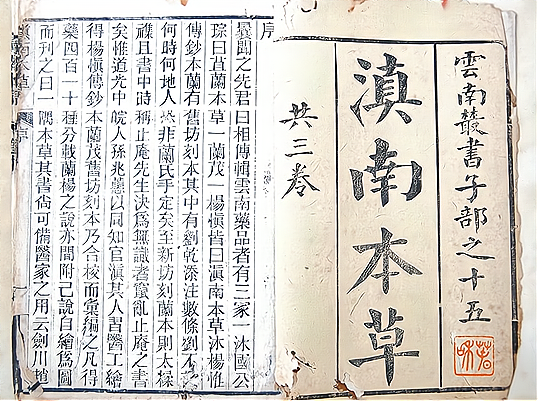 雲南叢書子部之十五
滇南本草
共三卷
序
曩聞之先君曰相傳輯雲南藥品者有三家一沐國公
琮曰苴蘭本草一蘭茂一楊慎皆曰滇南本草沐楊惟
傳鈔本蘭有舊坊刻本其中有劉乾添注數條劉不
何時何地人非蘭氏手定矣至新坊刻蘭本則太糅
襍且書中時稱止庵先生決爲無識者竄亂止庵之書
矣惟道光中皖人孫兆蕙以同知官滇其人習醫工繪
得楊慎傳鈔本蘭茂舊坊刻本乃合校而彙編之凡得
藥四百一十種分載蘭楊之說亦間附己說自繪爲圖
而刊之曰一隅本草其書尙可備醫家之用云劍川趙